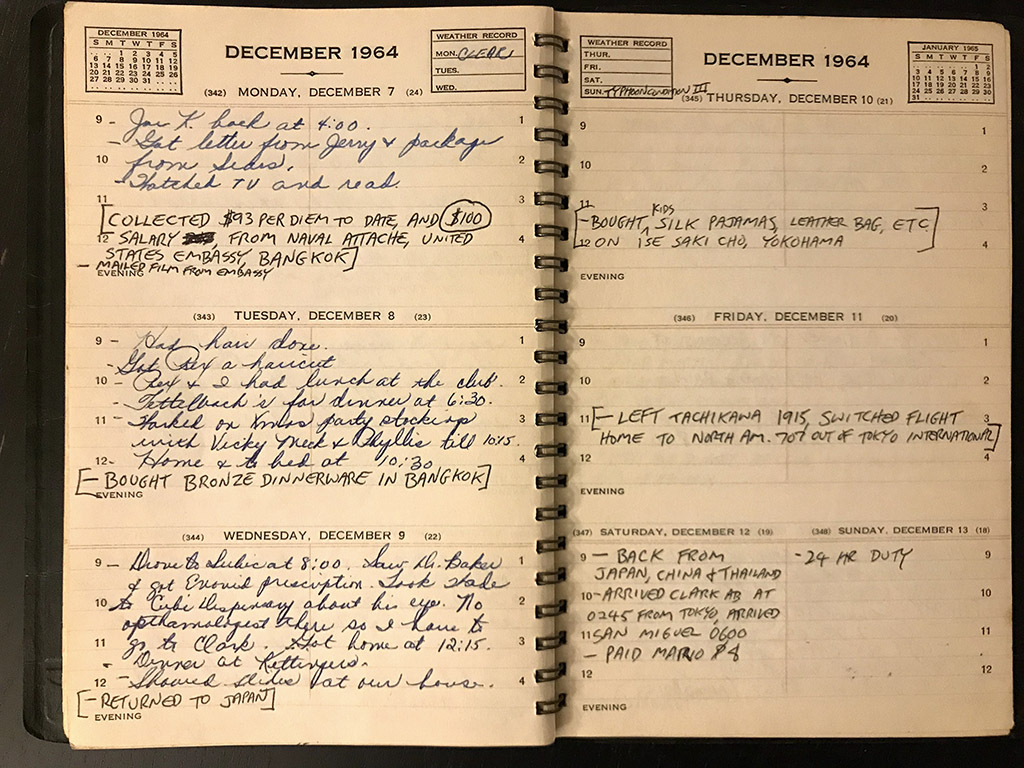 DECEMBER 1964
S M T W T F S
1 2 3 4 5
6 7 8 9 10 11 12
13 14 15 16 17 18 19
20 21 22 23 24 25 26
27 28 29 30 31
DECEMBER 1964
WEATHER RECORD
MON. CLEAR
TUES.
WED.
(342) MONDAY, DECEMBER 7 (24)
9 - Joe K. back at 4:00. 1
- Got letter from Jerry & package
10 from Sears. 2
- Watched TV and read.
11 3
[COLLECTED $93 PER DIEM TO DATE, AND $100
12 SALARY, FROM NAVAL ATTACHE, UNITED 4
STATES EMBASSY, BANGKOK]
- MAILED FILM FROM EMBASSY
EVENING
(343) TUESDAY, DECEMBER 8 (23)
9 - Had hair done. 1
- Got Rex a haircut
10 - Rex & I had lunch at the club. 2
- Tettelbach's for dinner at 6:30.
11 - Worked on Xmas party stockings 3
with Vicky Meck & Phyllis till 10:15.
12 - Home & to bed at 10:30 4
[- BOUGHT BRONZE DINNERWARE IN BANGKOK]
EVENING
(344) WEDNESDAY, DECEMBER 9 (22)
9 - Drove to Subic at 8:00. Saw Dr. Baker 1
& got Enovid prescription. Took Wade
10 to Cubi Dispensary about his eye. No 2
opthamologist there so I have to
11 go to Clark. Got home at 12:15. 3
- Dinner at Rettingers.
12 - Showed slides at our house. 4
[- RETURNED TO JAPAN]
EVENING
WEATHER RECORD
THUR.
FRI.
SAT.
SUN. TYPHOON CONDITION III
DECEMBER 1964
JANUARY 1965
S M T W T F S
1 2
3 4 5 6 7 8 9
10 11 12 13 14 15 16
17 18 19 20 21 22 23
24 25 26 27 28 29 30
31
(345) THURSDAY, DECEMBER 10 (21)
9 1
10 2
11 3
KIDS
[-BOUGHT, SILK PAJAMAS, LEATHER BAG, ETC.
12 ON ISE SAKI CHO, YOKOHAMA] 4
EVENING
(346) FRIDAY, DECEMBER 11 (20)
9 1
10 2
11 [- LEFT TACHIKAWA 1915, SWITCHED FLIGHT 3
HOME TO NORTH AM. 707 OUT OF TOKYO INTERNATIONAL]
12 4
EVENING
(347) SATURDAY, DECEMBER 12 (19)
9 - BACK FROM
JAPAN, CHINA & THAILAND
10 - ARRIVED CLARK AB AT
0245 FROM TOKYO, ARRIVED
11 SAN MIGUEL 0600
- PAID MARIO $8
12
EVENING
(348) SUNDAY, DECEMBER 13 (18)
- 24 HR DUTY 9
10
11
12